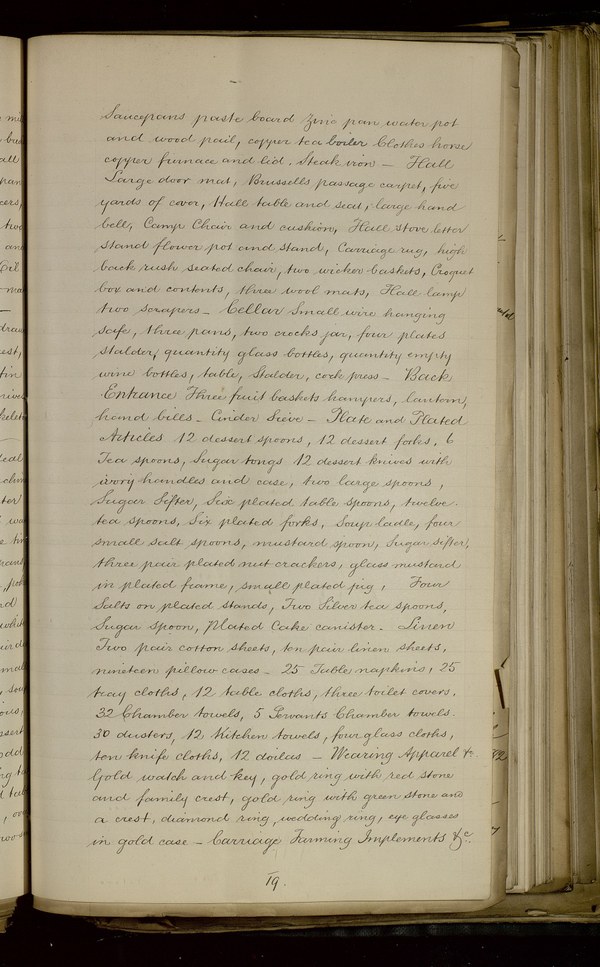 Saucepans paste board Zinc pan water pot
and wood pail, copper tea boiler Clothes horse
copper furnace and lid. Steak iron — Hall
Large door mat, Brussells passage carpet, five
yards of cover, Hall table and seat, large hand
bell, Camp Chair and cushion, Hall stove letter
stand flower pot and stand, Carriage rug, high
back rush seated chair, two wicker baskets, Croquet
box and contents, three wool mats, Hall lamp
two scrapers — Cellar Small wire hanging
safe, three pans, two crocks jar, four plates
Stalder, quantity glass bottles, quantity empty
wine bottles, table, Stalder, cork press — Back
Entrance Three fruit baskets hampers, lantern,
hand bills — Cinder Sieve — Plate and Plated
Articles 12 dessert spoons, 12 dessert forks, 6
Tea spoons, Sugar tongs 12 dessert knives with
ivory handles and case, two large spoons,
Sugar Sifter, Six plated table spoons, twelve
tea spoons, Six plated forks, Soup ladle, four
small salt spoons, mustard spoon, Sugar sifter,
three pair plated nut crackers, glass mustard
in plated frame, small plated jug, Four
Salts on plated stands, Two Silver tea spoons,
Sugar spoon, Plated Cake canister. Linen
Two pair cotton sheets, ten pair linen sheets,
nineteen pillow cases — 25 Table napkins, 25
tray cloths, 12 table cloths, three toilet covers,
32 Chamber towels, 5 Servants Chamber towels.
30 dusters, 12 Kitchen towels, four glass cloths,
ten knife cloths, 12 doilas — Wearing Apparel &c
Gold watch and key, gold ring with red stone
and family crest, gold ring with green stone and
a crest, diamond ring, wedding ring, eye glasses
in gold case — Carriage Farming Implements &c.
19.